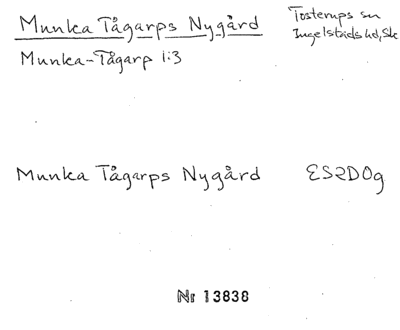 Munka Tågarps Nygård
Tosterups sn
Ingelstads hd, Sk
Munka-Tågarp 1:3
Munka Tågarps Nygård ES2DOg
Nr 13838